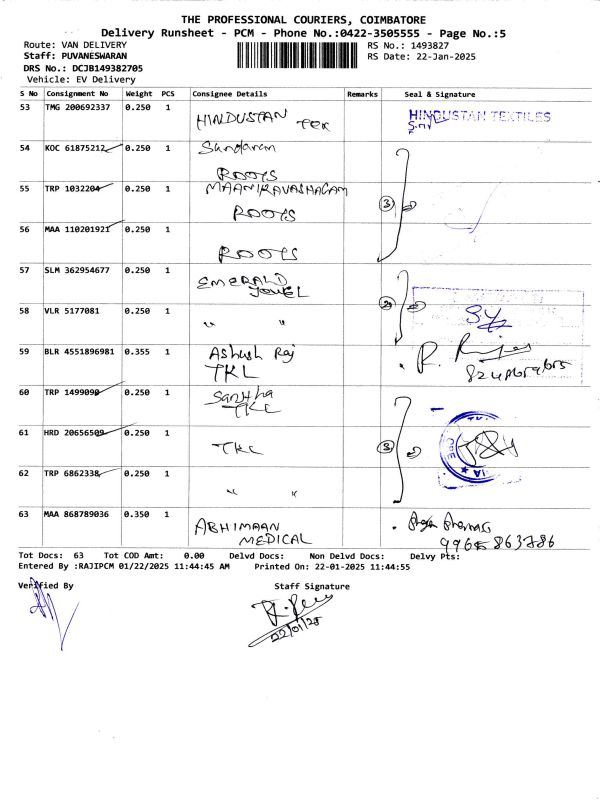 THE PROFESSIONAL COURIERS, COIMBATORE
Delivery Runsheet - PCM - Phone No.:0422-3505555 - Page No.:5
Route: VAN DELIVERY
Staff: PUVANESWARAN
DRS No.: DCJB149382705
Vehicle: EV Delivery
RS No.: 1493827
RS Date: 22-Jan-2025
S No Consignment No Weight PCS Consignee Details Remarks Seal & Signature
53 TMG 200692337 0.250 1 HINDUSTAN TEX HINDUSTAN TEXTILES
54 KOC 61875212 0.250 1 Sundaram
ROOTS
55 TRP 1032204 0.250 1 MAANIKAVASHAGAM
ROOTS
③
56 MAA 110201921 0.250 1
ROOTS
57 SLM 362954677 0.250 1 EMERALD
JOWEL
58 VLR 5177081 0.250 1 " "
②
59 BLR 4551896981 0.355 1 Ashush Raj
TKL
60 TRP 1499090 0.250 1 Sanjtha
TKL
61 HRD 20656509 0.250 1 TKL
③
62 TRP 6862338 0.250 1 " "
63 MAA 868789036 0.350 1 ABHIMAAN
MEDICAL
863786
Tot Docs: 63 Tot COD Amt: 0.00 Delvd Docs: Non Delvd Docs: Delvy Pts:
Entered By :RAJIPCM 01/22/2025 11:44:45 AM Printed On: 22-01-2025 11:44:55
Verified By Staff Signature
22/01/25